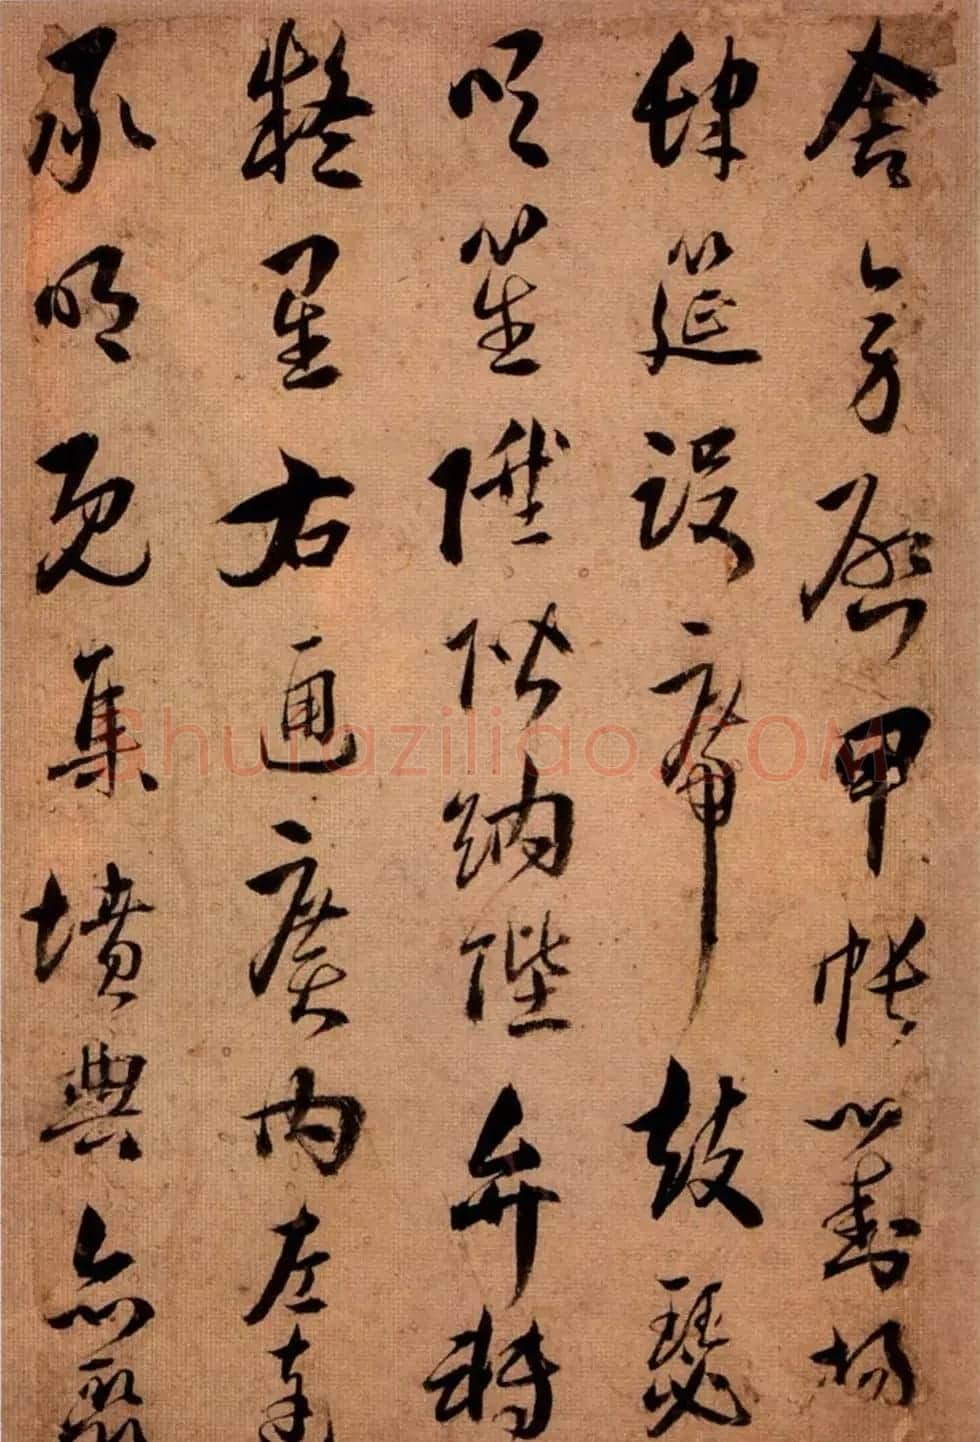 舍傍啟甲帳對楹
肆筵設席鼓瑟
吹笙陞階納陛弁轉
疑星右通廣內左達
承明既集墳典亦聚
Shufaziliao.COM